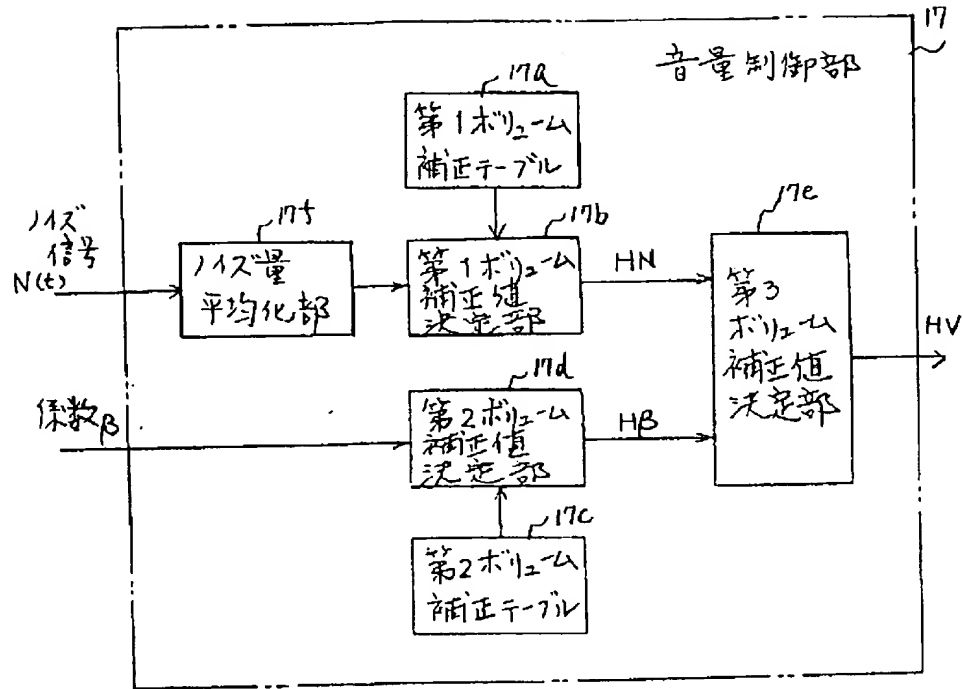 17
音量制御部
17a
第1ボリューム
補正テーブル
ノイズ
信号
N(t)
17f
ノイズ量
平均化部
17b
第1ボリューム
補正値
決定部
HN
17e
第3
ボリューム
補正値
決定部
HV
係数β
17d
第2ボリューム
補正値
決定部
Hβ
17c
第2ボリューム
補正テーブル